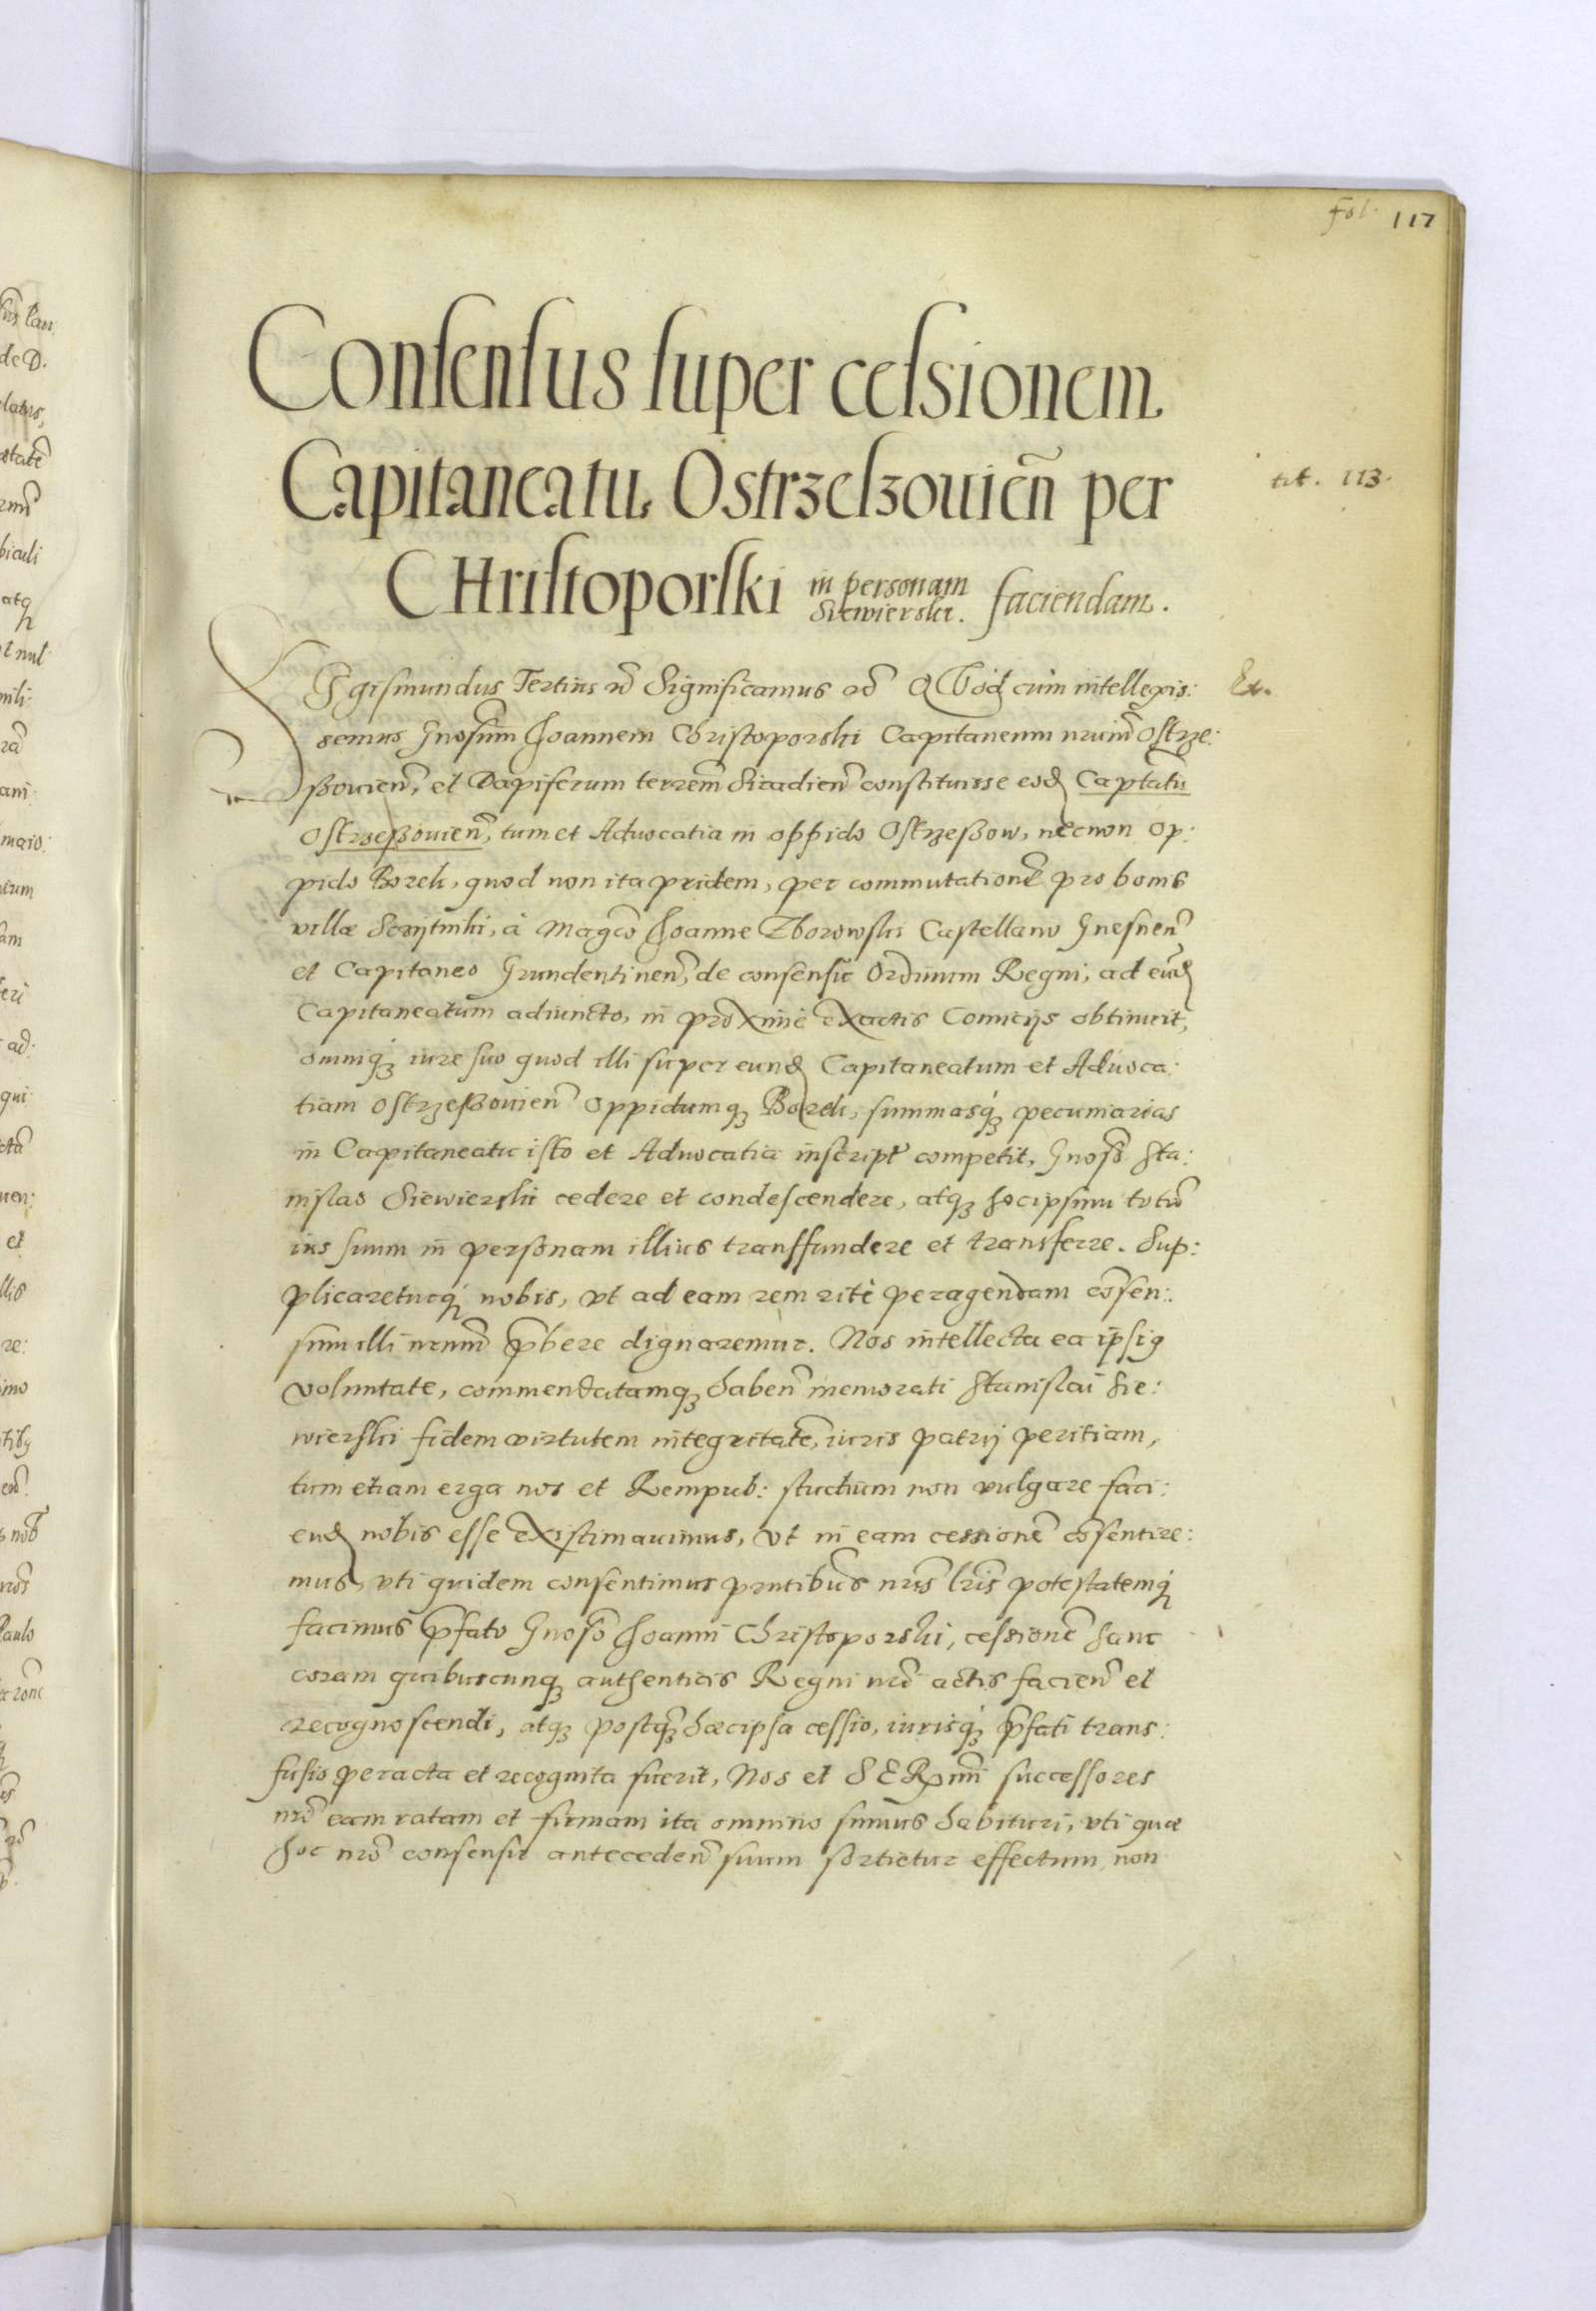 fol. 117
Consensus super cessionem
Capitaneatu, Ostrzeszouień per
tit. 113.
CHristoporski in personam Siewierski. faciendam.
Sigismundus Tertius etc̃ Significamus etc̃ QVod cùm intellexis:
Ex.
semus Gnosũm Joannem Christoporski Capitaneum nrũm Ostrze:
ßouien̄, et Dapiferum terrem̃ Siradien̄ constituisse eod Captãtu
Ostrzeßouien̄, tum et Aduocatia in oppido Ostrzeßow, necnon op:
pido Borek, quod non ita pridem, per commutationẽ pro bonis
villæ, à Magcõ Joanne Zborowski Castellano Gnesnen̄
et Capitaneo Grundentinen̄, de consensu Ordinum Regni, ad eund
Capitaneatum adiuncto, in proximè exactis Comicijs obtinuit,
omniq́ꝫ iure suo quod illi super eund Capitaneatum et Aduoca:
tiam Ostrzeßouien̄ oppidumqꝫ Borek, summasq́ꝫ pecuniarias
in Capitaneatu isto et Aduocatia inscript̃ competit, Gnosõ Sta:
nislao Siewierski cedere et condescendere, atqꝫ hocipsum totũ
ius suum in personam illius transfundere et transferre. Sup:
plicareturq́ꝫ nobis, vt ad eam rem ritè peragendam cõsen:
sum illi nrũm p̃bere dignaremur. Nos intellecta ea ipsiꝰ
voluntate, commendatamqꝫ haben̄ memorati Stanislai Sie:
wierski fidem virtutem integritatẽ, iuris patrij peritiam,
tum etiam erga nos et Rempub: studium non vulgare faci:
end nobis esse existimauimus, vt in eam cessionẽ cõsentire:
mus, vti quidem consentimus pñtibus nrĩs lrĩs potestatemq́ꝫ
facimus p̃fato Gnosõ Joanni Christoporski, cessionẽ hanc
coram quibuscunqꝫ authenticis Regni nrĩ actis facien̄ et
recognoscendi, atqꝫ postq̃ꝫ hæcipsa cessio, iurisq́ꝫ p̃fati trans:
fusio peracta et recognita fuerit, Nos et SERmĩ successores
nrĩ eam ratam et firmam ita omnino sumus habituri, vti quæ
hoc nrõ consensu anteceden̄ suum sortietur effectum, non